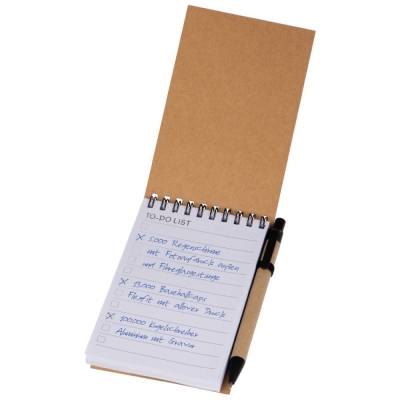 TO-DO LIST
x 5.000 Regenschirme
mit Fotoaufdruck außen
und Fiberglasgestänge
x 15.000 Baseballcaps
Flexfit mit allover Druck
x 100.000 Kugelschreiber
Aluminium mit Gravur